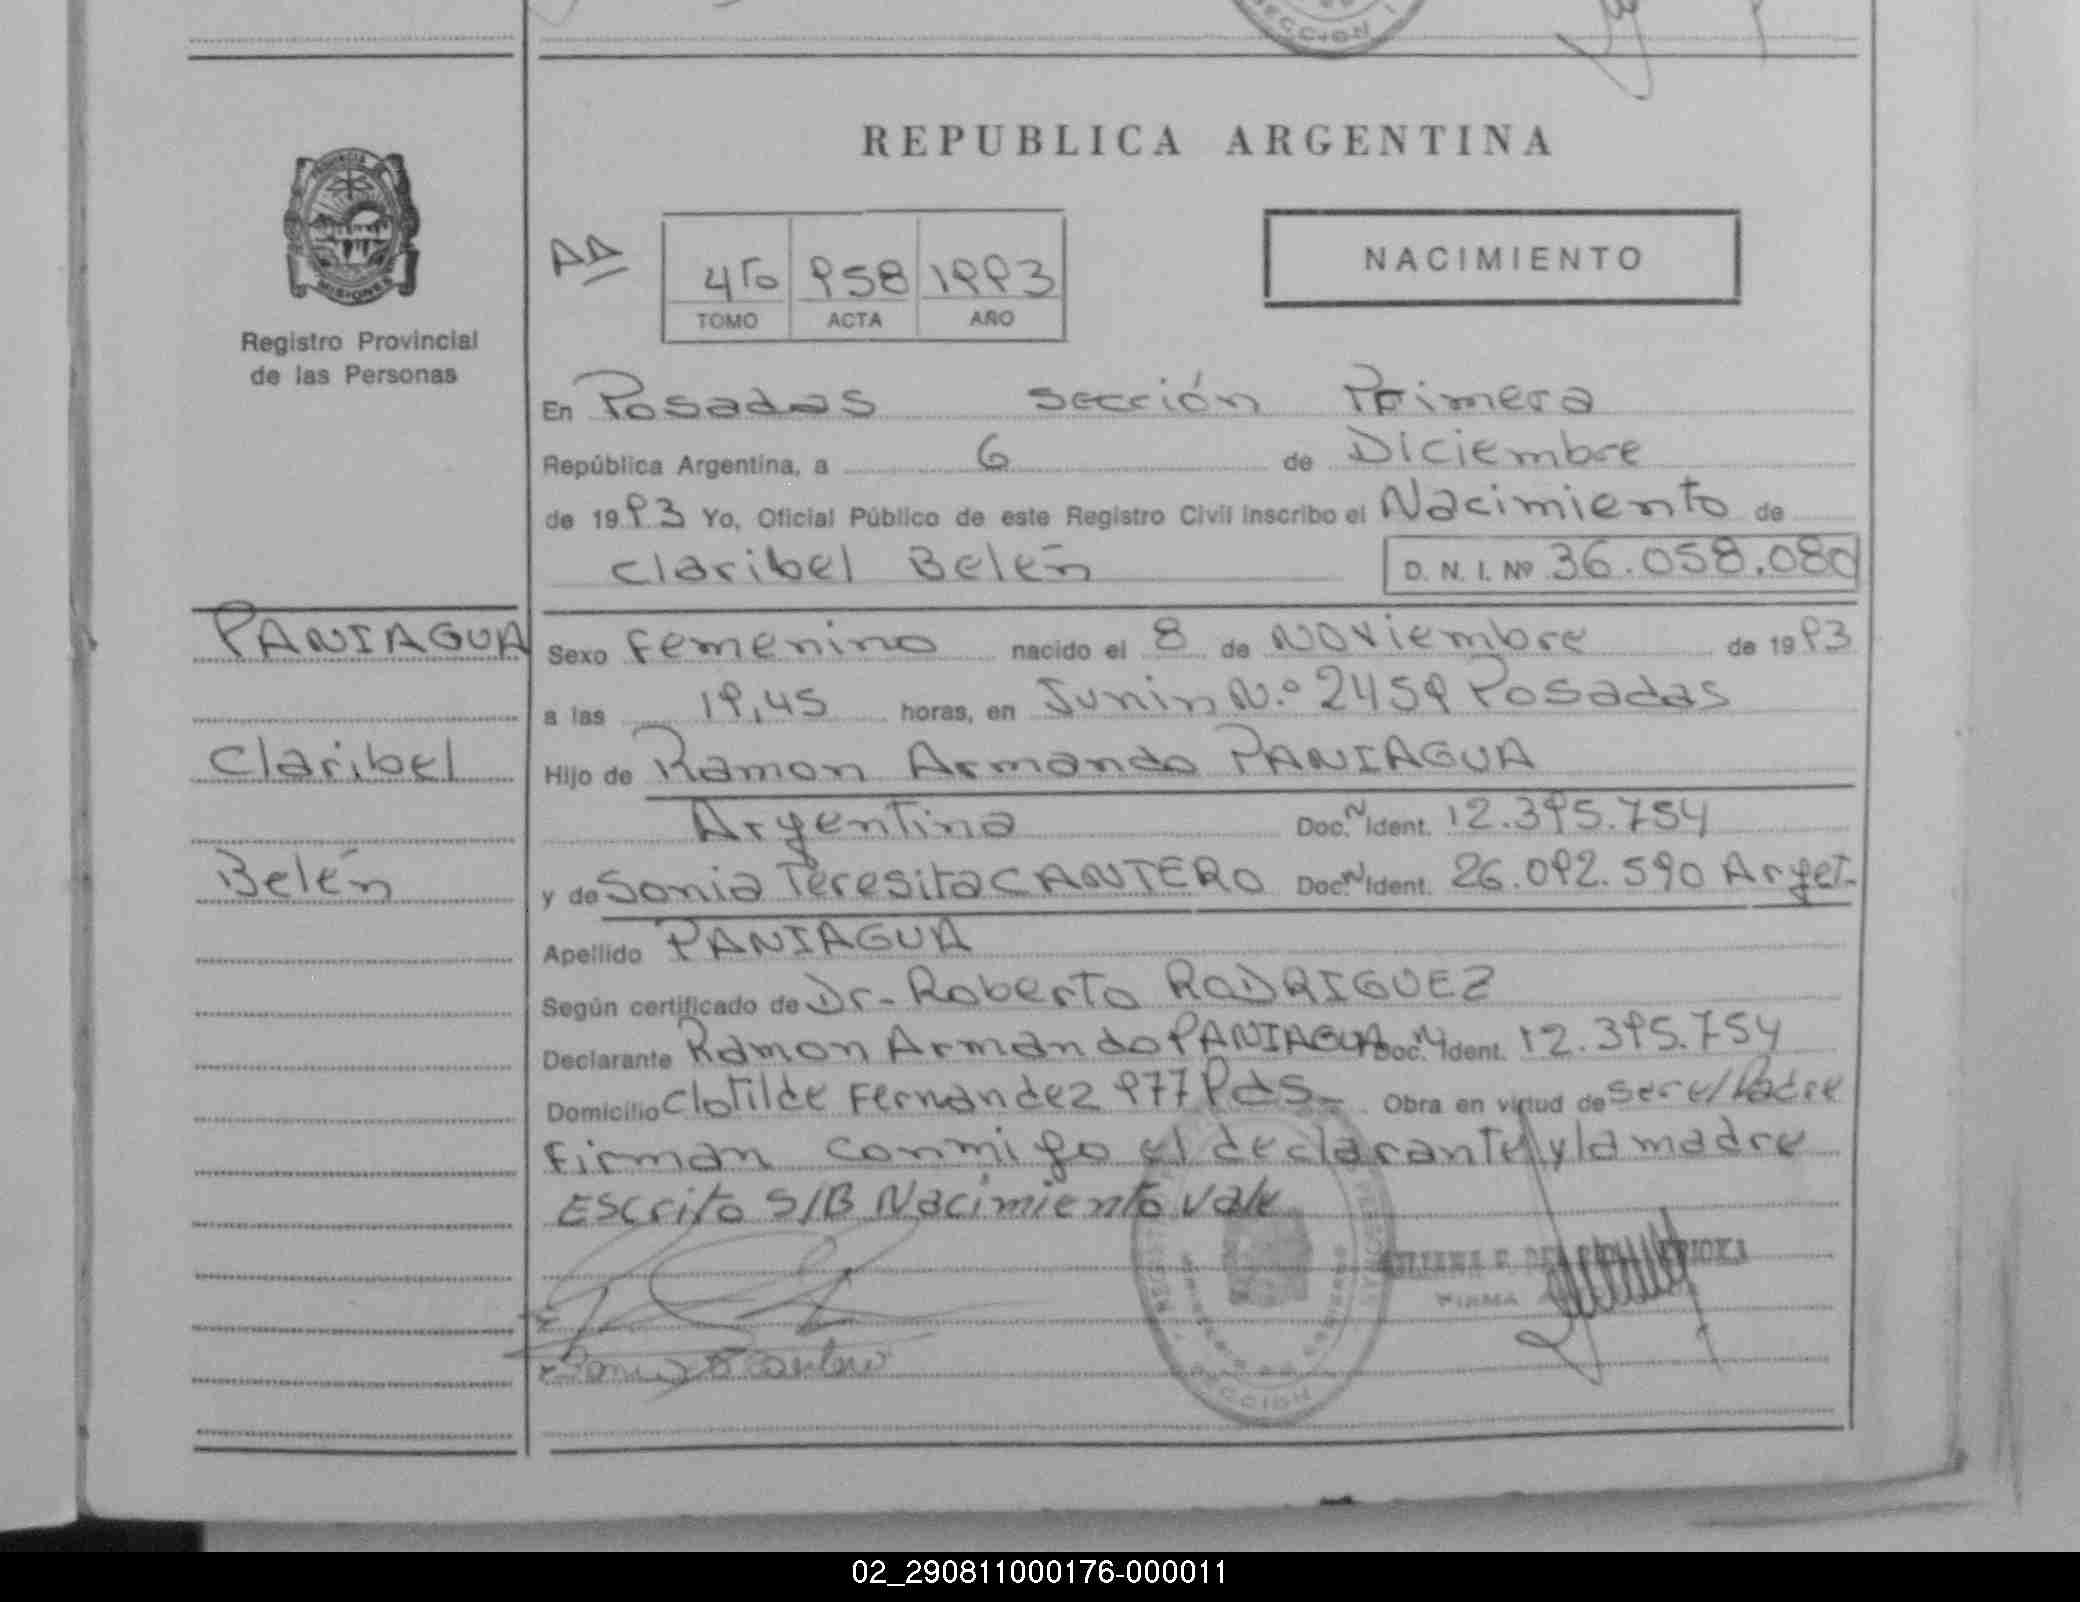 REPUBLICA ARGENTINA
PROVINCIA
MISIONES
Registro Provincial
de las Personas
AA
4to 958 1993
TOMO ACTA AÑO
NACIMIENTO
En Posadas Sección Primera
República Argentina, a 6 de Diciembre
de 1993 Yo, Oficial Público de este Registro Civil inscribo el Nacimiento de
Claribel Belén D. N. I. Nº 36.058.080
PANIAGUA
Claribel
Belén
Sexo Femenino nacido el 8 de Noviembre de 1993
a las 19,45 horas, en Junin N.º 2459 Posadas
Hijo de Ramon Armando PANIAGUA
Argentina Doc. N Ident. 12.395.754
y de Sonia Teresita CANTERO Doc. N Ident. 26.092.590 Arget-
Apellido PANIAGUA
Según certificado de Dr- Roberto RODRIGUEZ
Declarante Ramon Armando PANIAGUA Doc. N Ident. 12.395.754
Domicilio Clotilde Fernandez 977 Pdas- Obra en virtud de ser el Padre
Firman conmigo el declarante y la madre
Escrito S/B Nacimiento vale
FIRMA
SECCION
02_290811000176-000011